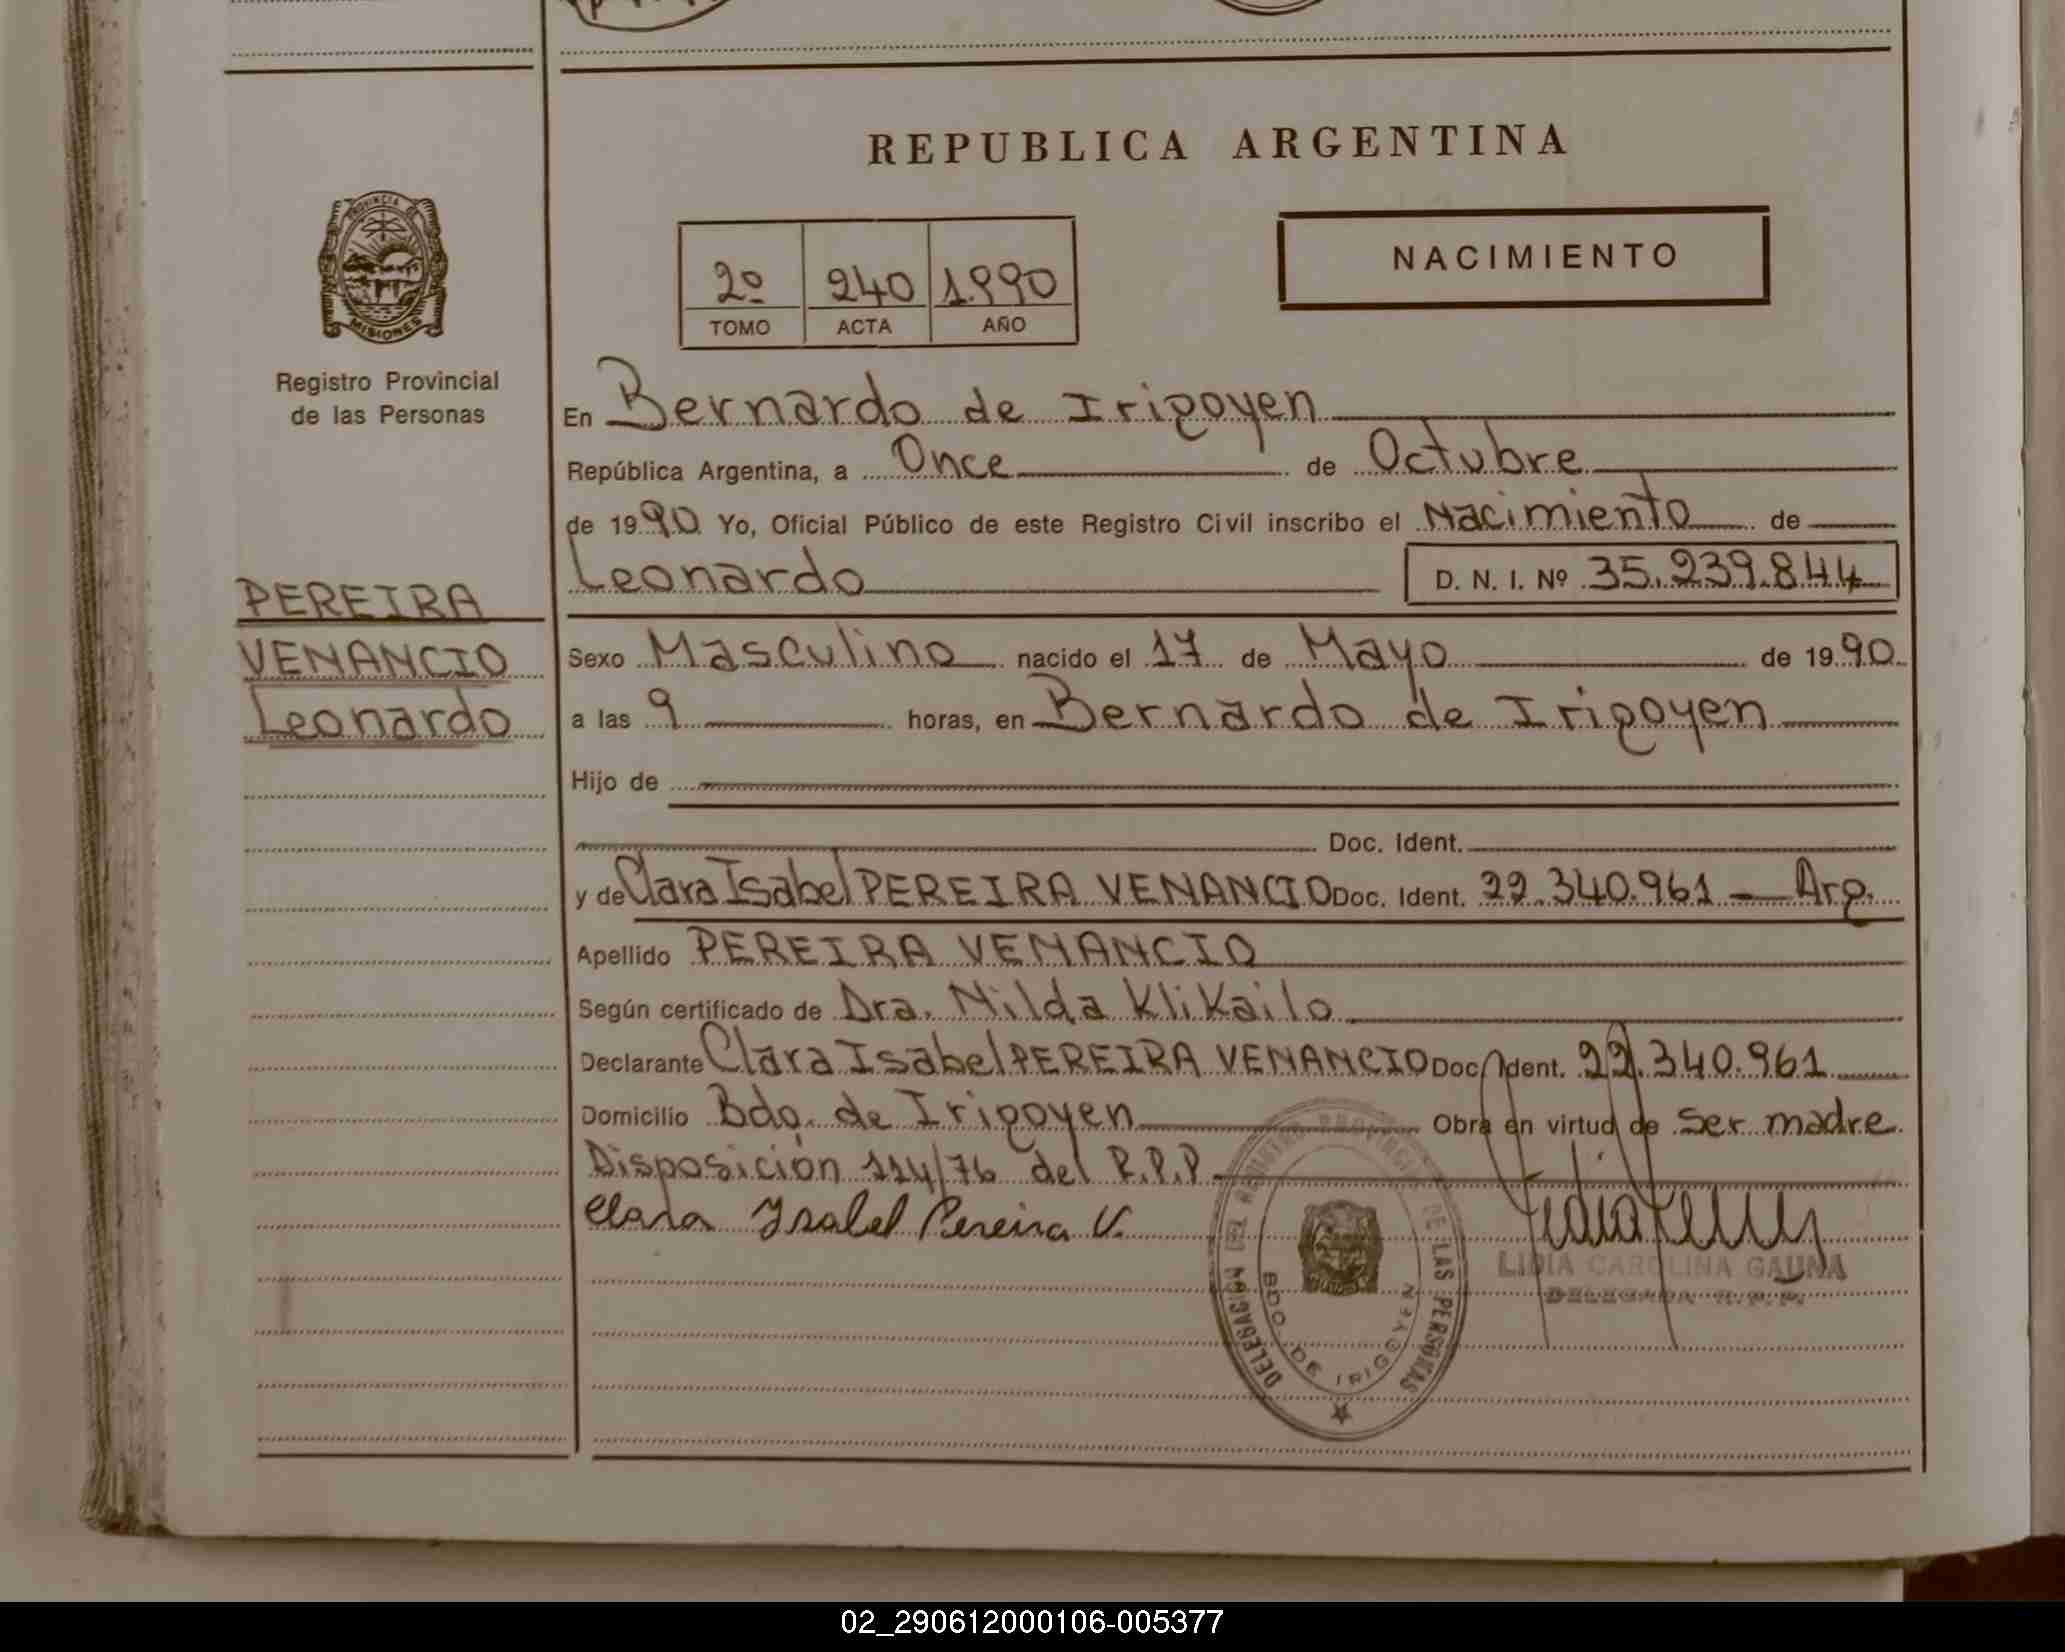 REPUBLICA ARGENTINA
PROVINCIA DE
MISIONES
Registro Provincial
de las Personas
2º 240 1.990
TOMO ACTA AÑO
NACIMIENTO
En Bernardo de Irigoyen
República Argentina, a Once de Octubre
de 1990 Yo, Oficial Público de este Registro Civil inscribo el Nacimiento de
Leonardo D. N. I. Nº 35.239.844
PEREIRA
VENANCIO
Leonardo
Sexo Masculino nacido el 17 de Mayo de 1990
a las 9 horas, en Bernardo de Irigoyen
Hijo de
Doc. Ident.
y de Clara Isabel PEREIRA VENANCIO Doc. Ident. 22.340.961 — Arg.
Apellido PEREIRA VENANCIO
Según certificado de Dra. Nilda Klikailo
Declarante Clara Isabel PEREIRA VENANCIO Doc. Ident. 22.340.961
Domicilio Bdo. de Irigoyen Obra en virtud de ser madre
Disposición 114/76 del R.P.P
Clara Ysabel Pereira V.
DELEGACION DEL REGISTRO PROVINCIAL DE LAS PERSONAS
BDO. DE IRIGOYEN
LIDIA CAROLINA GAUNA
DELEGADA R.P.P.
02_290612000106-005377